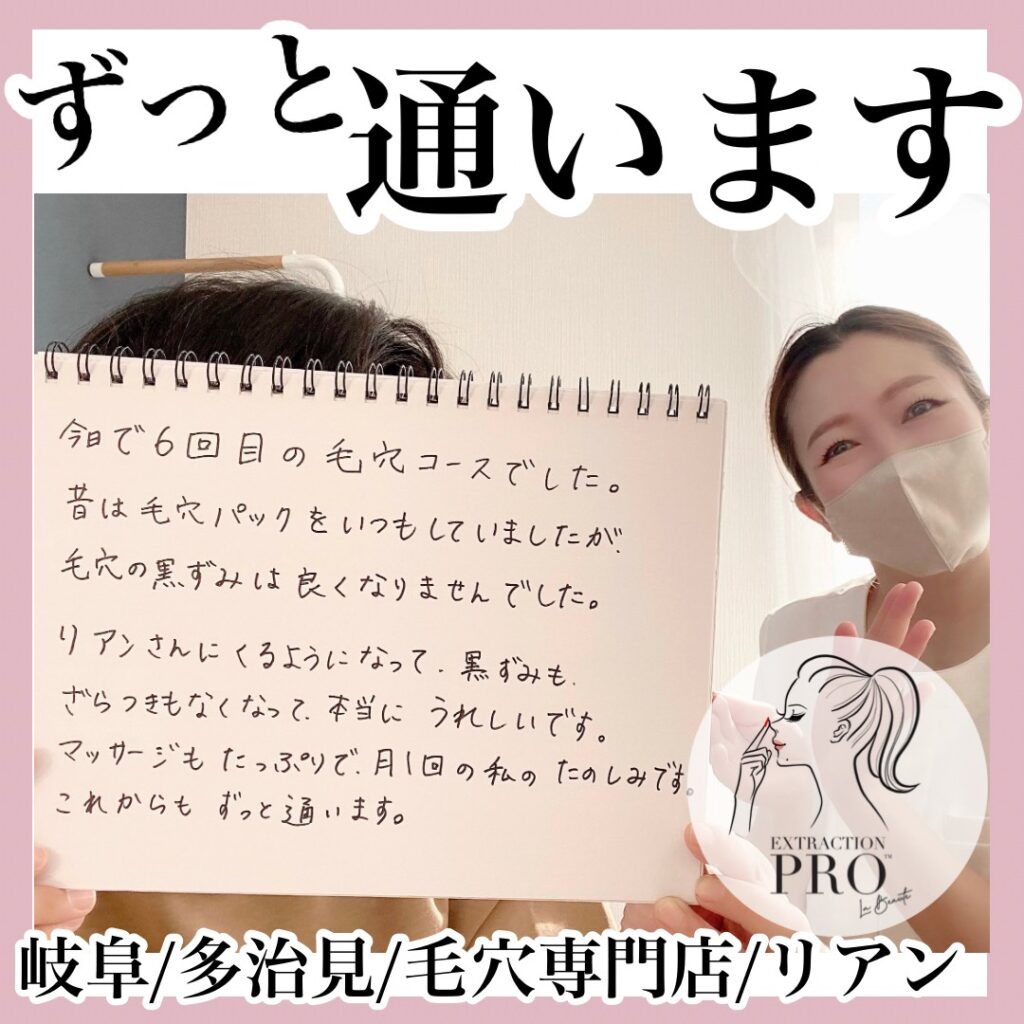 ずっと通います
今日で6回目の毛穴コースでした。
昔は毛穴パックをいつもしていましたが、
毛穴の黒ずみは良くなりませんでした。
リアンさんにくるようになって、黒ずみも、
ざらつきもなくなって、本当に うれしいです。
マッサージも たっぷりで、月1回の私の たのしみです。
これからも ずっと通います。
EXTRACTION
PRO™
La Beauté
岐阜/多治見/毛穴専門店/リアン